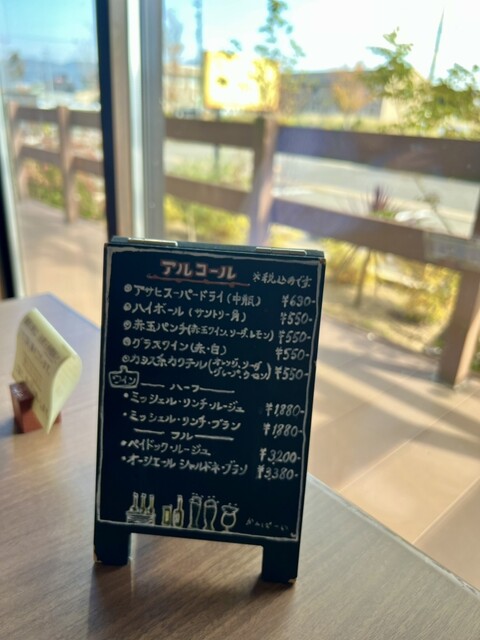 アルコール ※税込み価
アサヒスーパードライ(中瓶) ¥630-
ハイボール(サントリー角) ¥550-
赤玉パンチ(赤玉ワイン、ソーダ、レモン) ¥550-
グラスワイン(赤・白) ¥550-
カシス系カクテル(オレンジ、ソーダ ¥550-
グレープ、ウーロン)
ワイン ハーフ
・ミッシェル・リンチ・ルージュ ¥1,880-
・ミッシェル・リンチ・ブラン ¥1,880-
フル
・ペイドック・ルージュ ¥3,200-
・オーシエール シャルドネ・ブラン ¥3,380-
かんぱーい